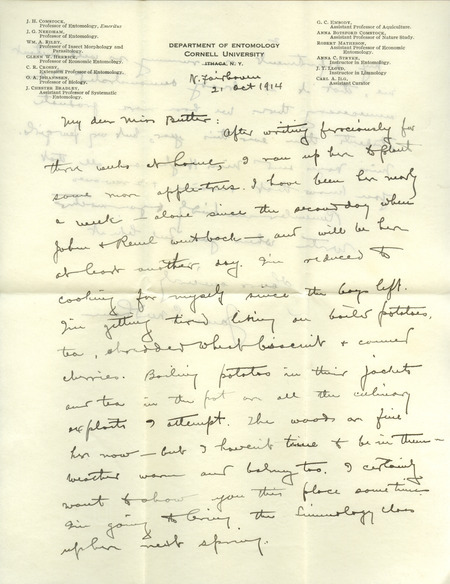 J. H. COMSTOCK,
Professor of Entomology, Emeritus
J. G. NEEDHAM,
Professor of Entomology.
WM. A. RILEY,
Professor of Insect Morphology and
Parasitology.
GLENN W. HERRICK,
Professor of Economic Entomology.
C. R. CROSBY,
Extension Professor of Entomology.
O. A. JOHANNSEN,
Professor of Biology.
J. CHESTER BRADLEY,
Assistant Professor of Systematic
Entomology.
DEPARTMENT OF ENTOMOLOGY
CORNELL UNIVERSITY
ITHACA, N. Y.
G. C. EMBODY,
Assistant Professor of Aquiculture.
ANNA BOTSFORD COMSTOCK,
Assistant Professor of Nature Study.
ROBERT MATHESON,
Assistant Professor of Economic
Entomology.
ANNA C. STRYKE,
Instructor in Entomology.
J. T. LLOYD,
Instructor in Limnology
CARL A. ILG,
Assistant Curator
N. Fairhaven
21 Oct 1914
My dear Miss Butler:
After writing ferociously for
three weeks at home, I ran up here to plant
some more apple-trees. I have been here nearly
a week — alone since the second day when
John & Paul went back — and will be here
at least another day. I'm reduced to
cooking for myself since the boys left.
I'm getting tired living on boiled potatoes,
tea, shredded wheat biscuit & canned
cherries. Boiling potatoes in their jackets
and tea in the pot are all the culinary
exploits I attempt. The woods are fine
here now — but I haven't time to be in them —
weather warm and balmy too. I certainly
want to show you this place sometime
I'm going to bring the Limnology class
up here next spring.